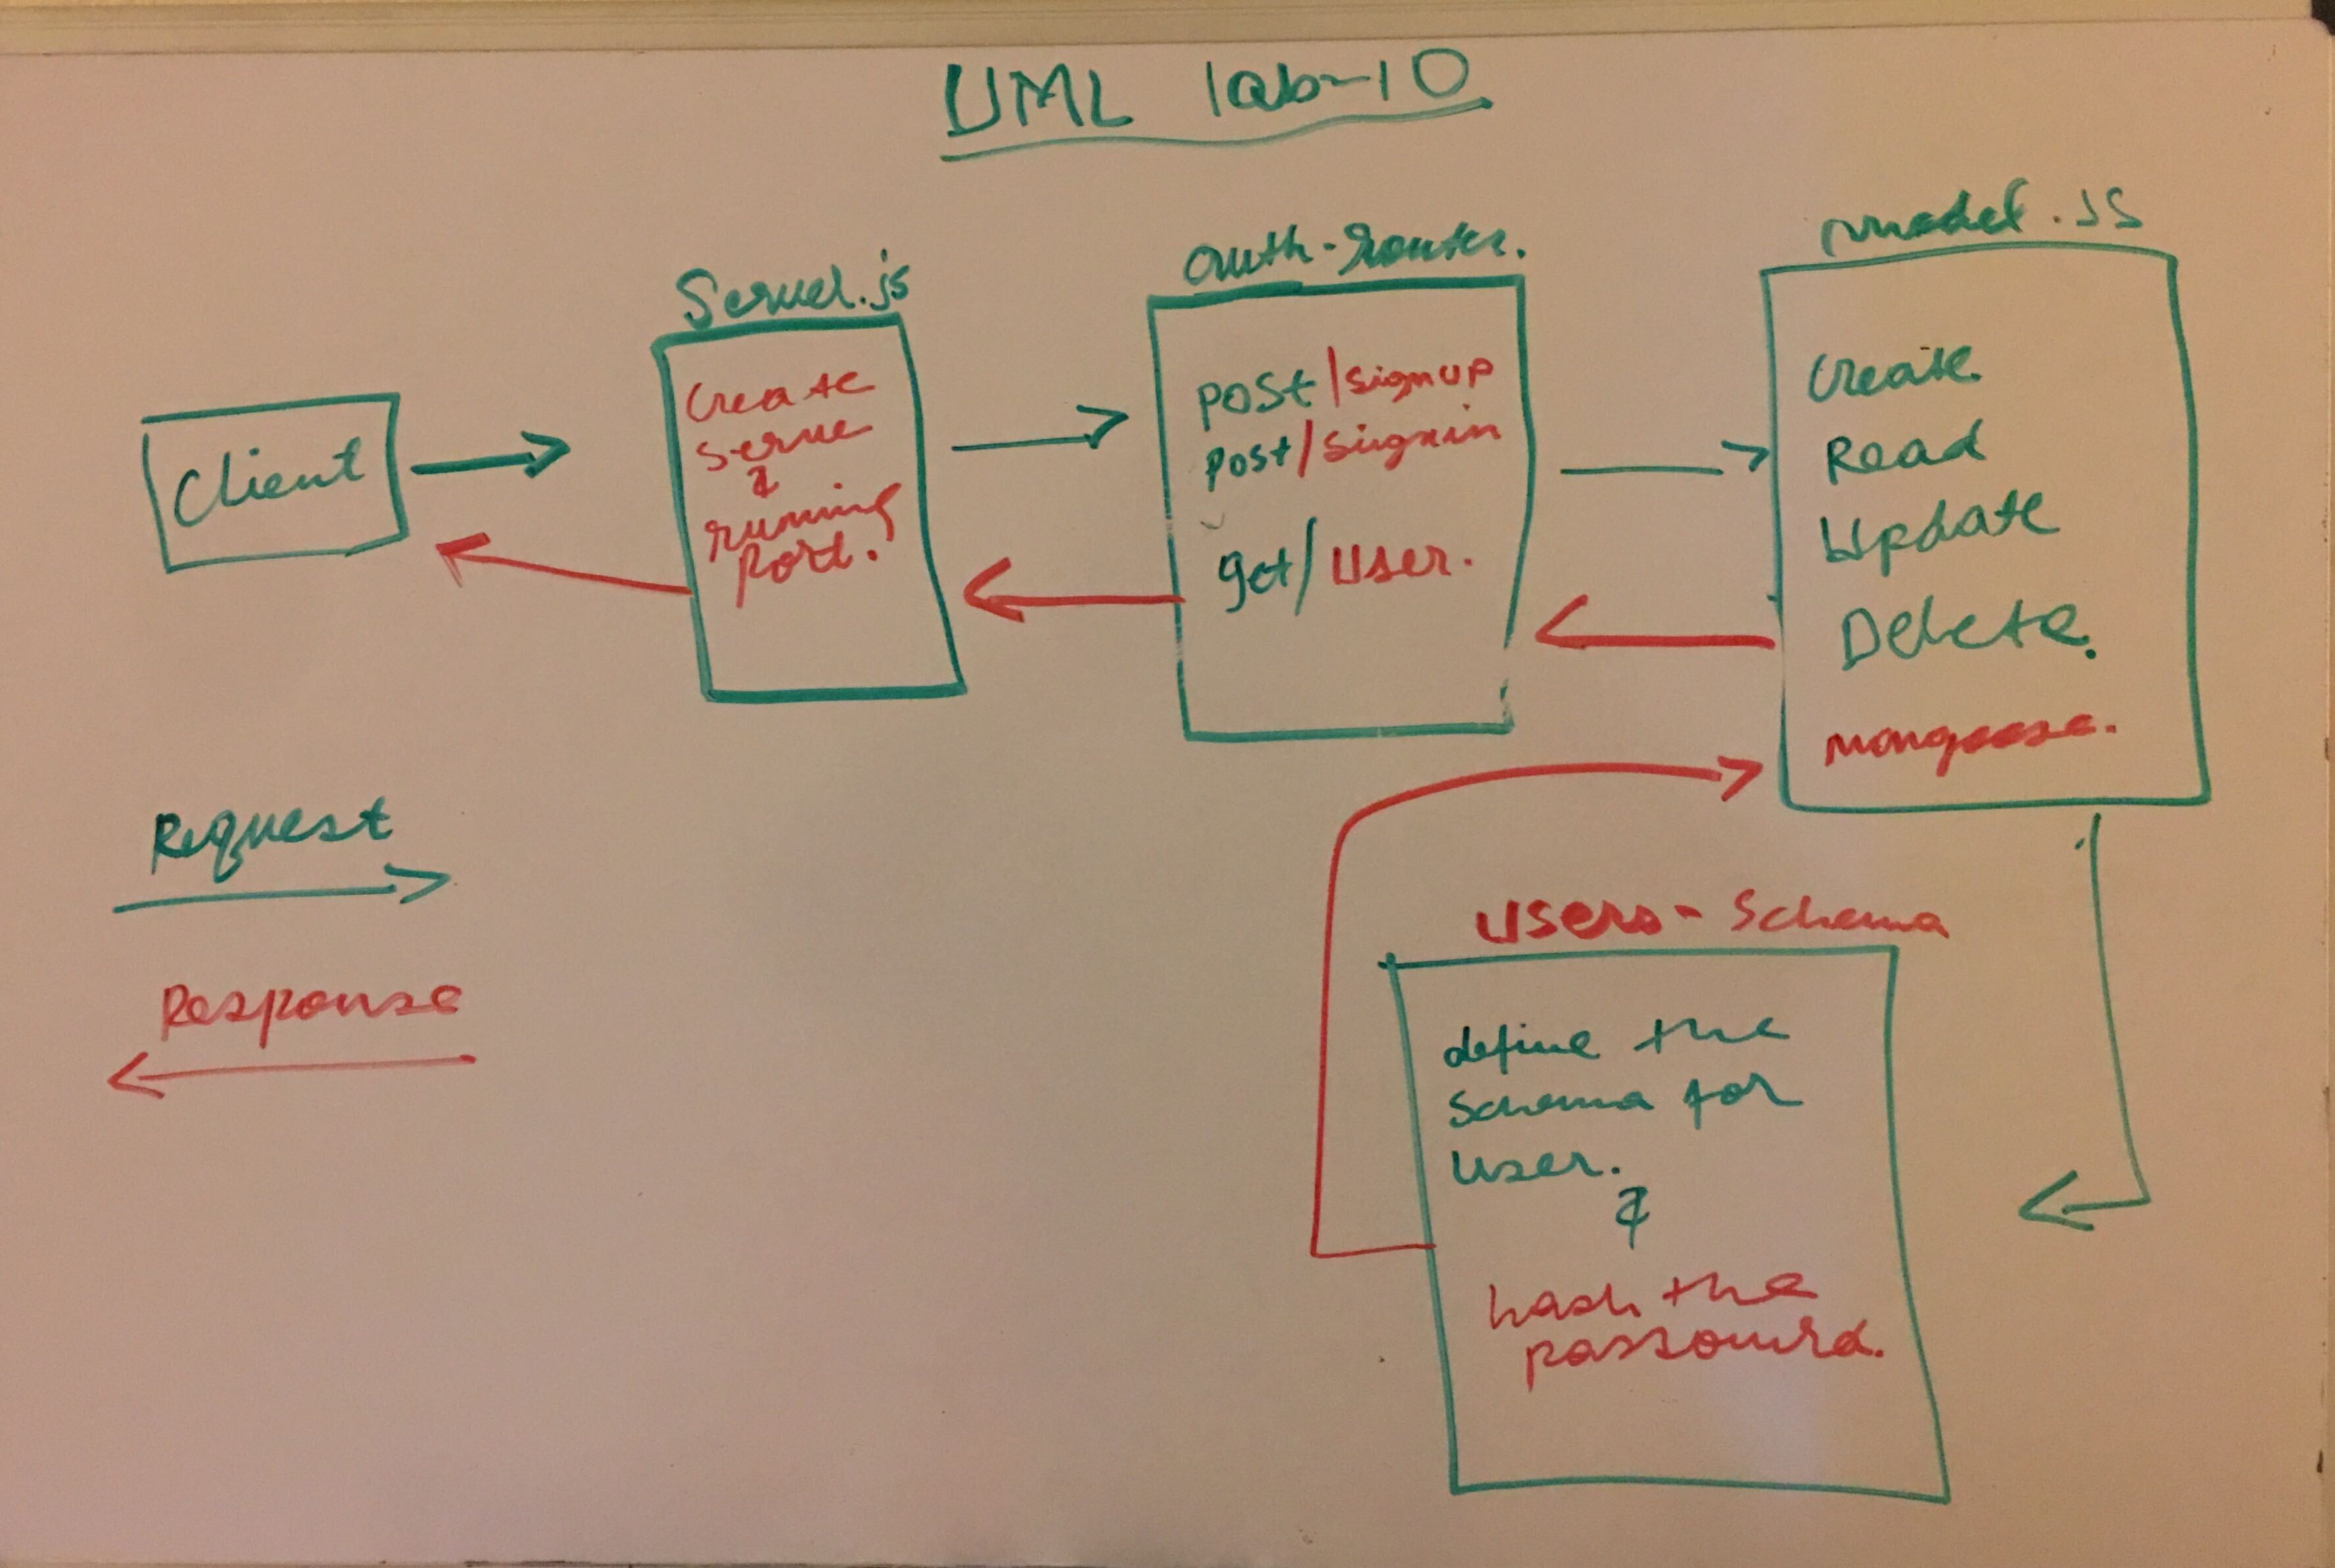 UML lab-10
Client
Server.js
Create
serve
&
running
Port.
auth-router.
post/signup
post/signin
get/user.
model.js
Create
Read
Update
Delete.
mongoose.
Request
Response
users-schema
define the
schema for
user.
&
hash the
password.